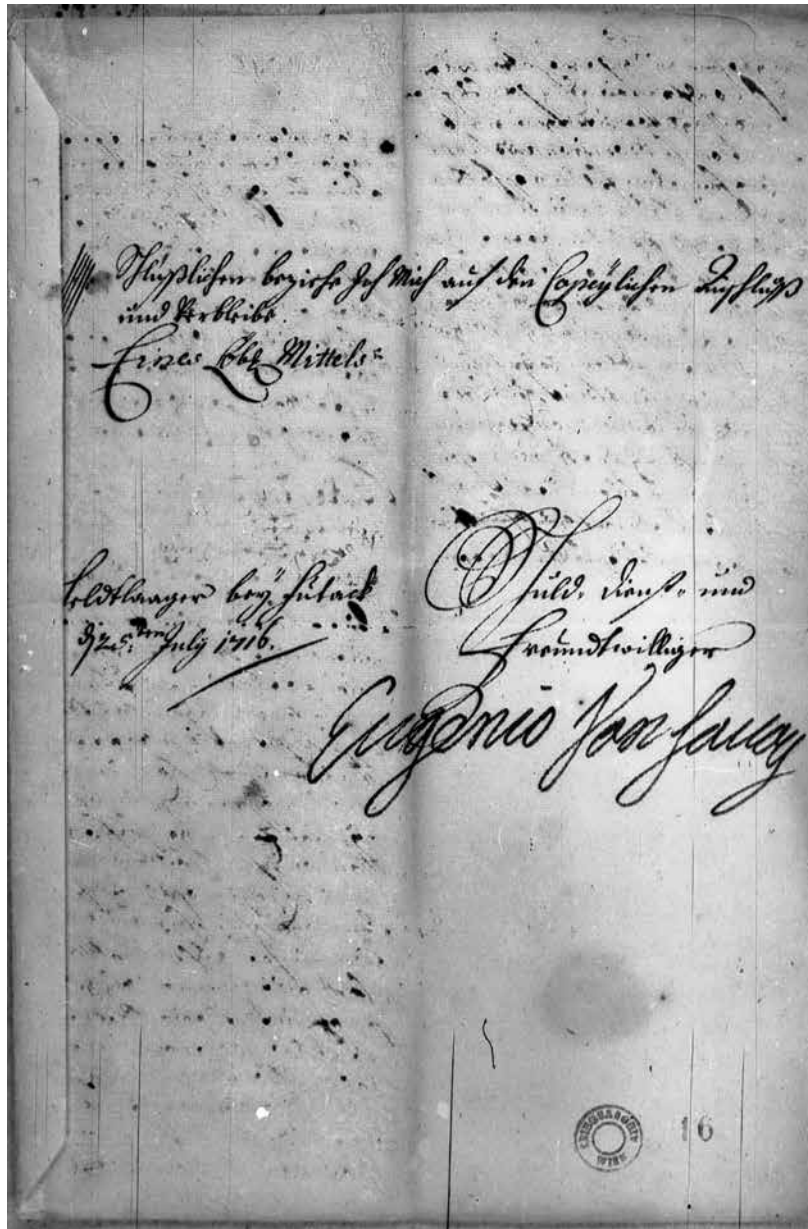 Schlüßlichen beziehe Ich Mich auf den Copeylichen Anschluß
und Verbleibe.
Eines Löbl Mittels
Feldtlaager bey Futack
d 25.ten July 1716.
Schuld. dienst- und
Freundtwilliger
Eugenio Von Savoy
KRIEGSARCHIV
WIEN
16